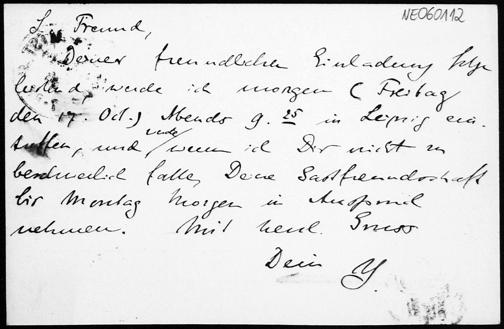 NE060112
L. Freund,
Deiner freundlichen Einladung folge
leistend, werde ich morgen (Freitag
den 17 Oct.) Abends 9.25 in Leipzig ein
treffen, und werde wenn ich Dir nicht zu
beschwerlich falle, Deine Gastfreundschaft
bis Montag Morgen in Anspruch
nehmen. Mit herzl. Gruss
Dein Y.